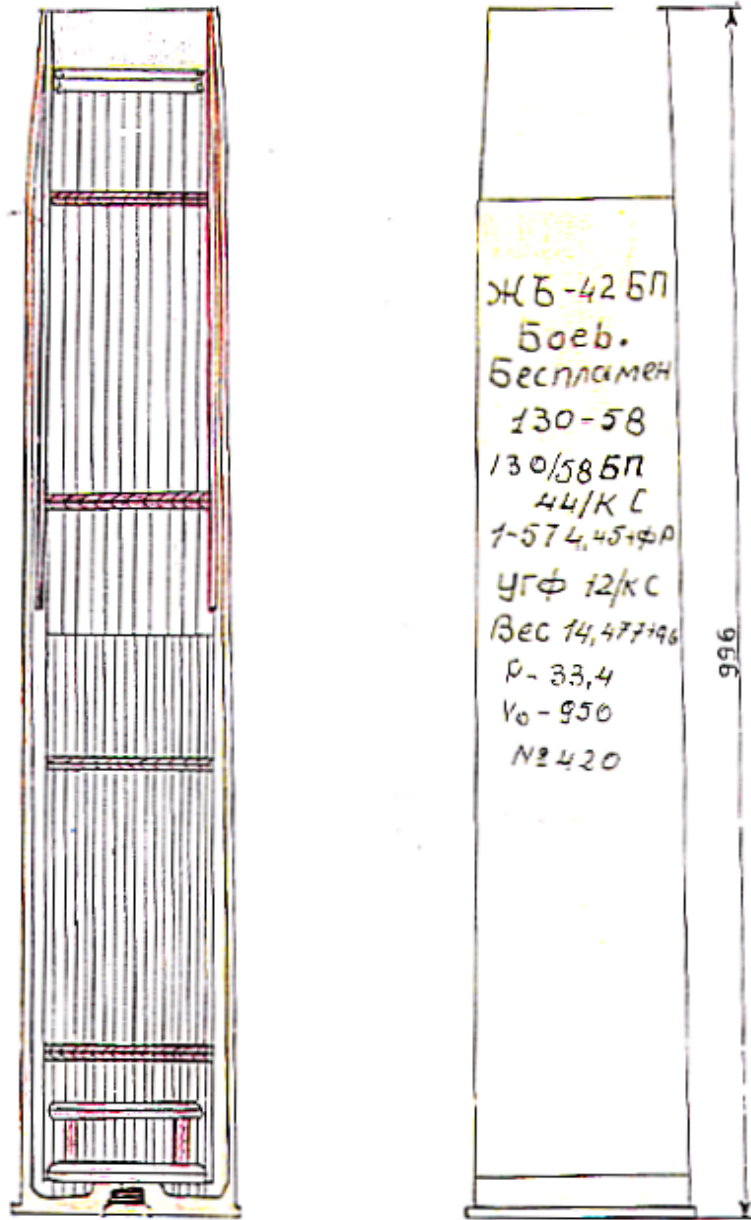 ЖБ-42 БП
Боев.
Беспламен
130-58
130/58 БП
44/К С
1-57 4,45+ФР
УГФ 12/К С
Вес 14,477+96
Р- 33,4
V₀ - 950
№ 420
996